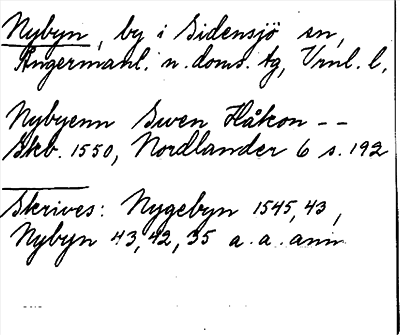 Nybyn, by i Sidensjö sn,
Ångermanl. n. doms. tg, Vrnl. l.
Nybyenn Swen Håkon --
Skb. 1550, Nordlander 6 s. 192
Skrives: Nygebyn 1545, 43,
Nybyn 43, 42, 35 a. a. ann